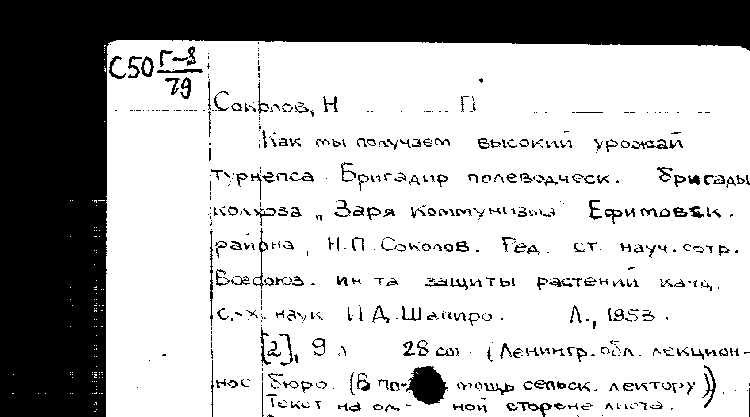 С50 Г-8
79
Соколов, Н П
Как мы получаем высокий урожай
турнепса. Бригадир полеводческ. бригады
колхоза „Заря Коммунизма" Ефимовск.
района, Н.П. Соколов. Ред. ст. науч. сотр.
Всесоюз. ин-та защиты растений канд.
с.-х. наук И.Д. Шапиро. Л., 1953.
[2], 9 л 28 см. (Ленингр. обл. лекцион-
ное бюро. (В по- мощь сельск. лектору)).
Текст на од- ной стороне листа.